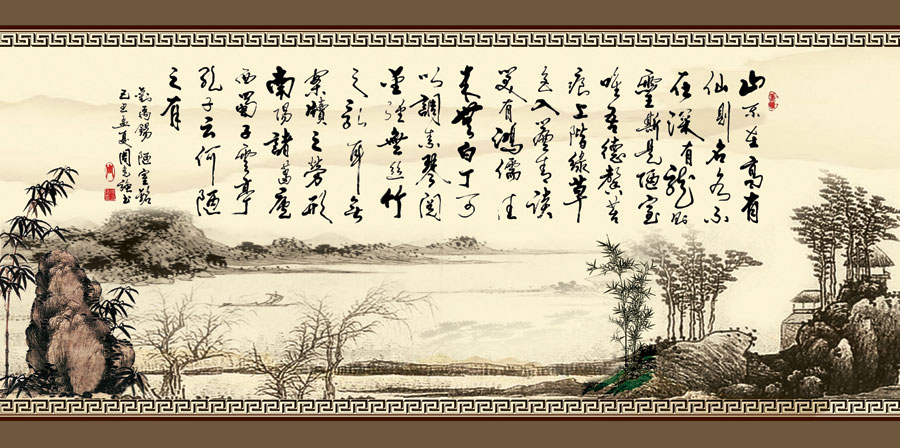 山不在高有
仙則名水不
在深有龍則
靈斯是陋室
唯吾德馨苔
痕上階綠草
色入簾青談
笑有鴻儒往
來無白丁可
以調素琴閱
金經無絲竹
之亂耳無
案牘之勞形
南陽諸葛廬
西蜀子雲亭
孔子云何陋
之有
劉禹錫陋室銘
己丑孟夏周書